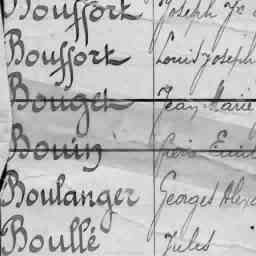 Bouffort Joseph
Bouffort Louis Joseph
Bouget Jean Marie
Bouin Pierre
Boulanger Georges
Boullé Jules